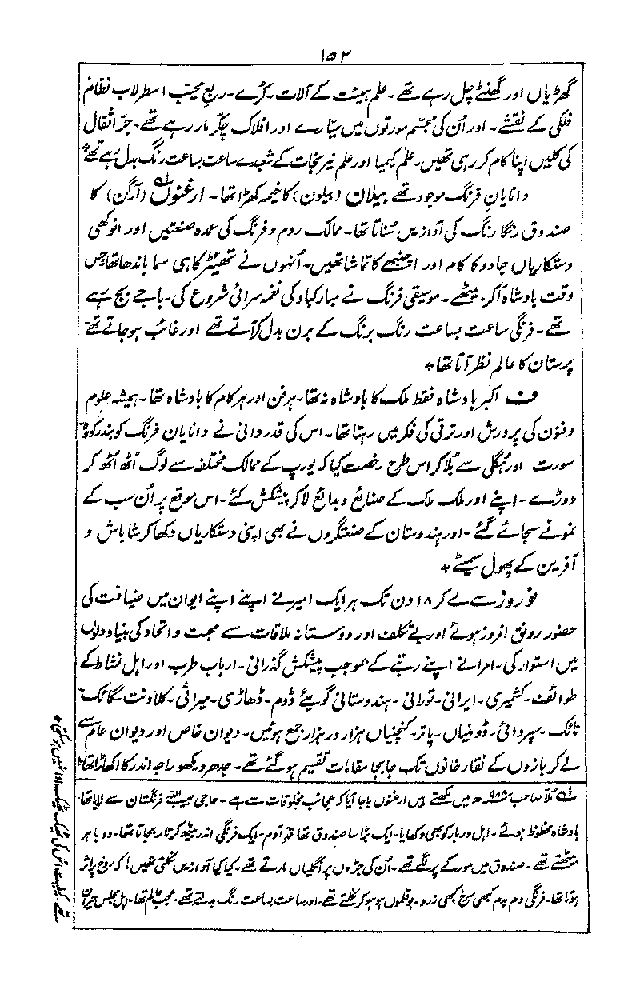 ۱۵۳
گھڑیاں اور گھنٹے چل رہے تھے ۔ علم ہیئت کے آلات کڑے ۔ ربع مجیب اسطرلاب نظام
فلکی کے نقشے ۔ اور اُن کی مجسم صورتوں میں سیارے اور افلاک چکر مار رہے تھے ۔ جر اثقال
کی کلیں اپنا کام کر رہی تھیں ۔ علم کیمیا اور علم نیرنجات کے شعبدے ساعت بساعت رنگ بدل رہے تھے
دانایانِ فرنگ موجود تھے بیلان (بیلون) کا خیمہ کھڑا تھا ۔ ارغنوں (آرگن) کا
صندوق رنگا رنگ کی آوازیں سناتا تھا ۔ ممالک روم و فرنگ کی عمدہ صنعتیں اور انوکھی
دستکاریاں جادو کا کام اور اچنبھے کا تماشا تھیں ۔ اُنہوں نے تھیٹر کا ہی سما باندھا تھا جس
وقت بادشاہ آکر بیٹھے ۔ موسیقی فرنگ نے مبارکباد کی نغمہ سرائی شروع کی ۔ باجے بج رہے
تھے ۔ فرنگی ساعت بساعت رنگ برنگ کے برن بدل کر آتے تھے اور غائب ہو جاتے تھے
پرستان کا عالم نظر آتا تھا ٭
ف اکبر بادشاہ فقط ملک کا بادشاہ نہ تھا ۔ ہر فن اور ہر کام کا بادشاہ تھا ۔ ہمیشہ علوم
و فنون کی پرورش اور ترقی کی فکر میں رہتا تھا ۔ اس کی قدردانی نے دانایان فرنگ کو بندر گووہ
سورت اور ہگلی سے بلا کر اس طرح رخصت کیا کہ یورپ کے ممالک مختلفہ سے لوگ اُٹھ اُٹھ کر
دوڑے ۔ اپنے اور ملک ملک کے صنائع و بدائع لاکر پیشکش کئے ۔ اس موقع پر اُن سب کے
نمونے سجائے گئے ۔ اور ہندوستان کے صنعتگروں نے بھی اپنی دستکاریاں دکھا کر شاباش و
آفرین کے پھول سمیٹے ٭
نوروز سے لے کر ۱۸ دن تک ہر ایک امیر نے اپنے اپنے ایوان میں ضیافت کی
حضور رونق افروز ہوئے اور بے تکلف اور دوستانہ ملاقات سے محبت و اتحاد کی بنیاد دلوں
میں استوار کی ۔ امرا نے اپنے رتبے کے بموجب پیشکش گذرانی ۔ ارباب طرب اور اہل نشاط کے
طوائف ۔ کشمیری ۔ ایرانی ۔ تورانی ۔ ہندوستانی گویّے ڈوم ۔ ڈھاڑی ۔ میراثی ۔ کلاونت گائک
نائک ۔ سپردائی ۔ ڈومنیاں ۔ پاتر ۔ کنچنیاں ہزار در ہزار جمع ہوئیں ۔ دیوان خاص اور دیوان عام سے
لے کر بازوں کے نقار خانوں تک جابجا مقامات تقسیم ہو گئے تھے ۔ جدھر دیکھو راجہ اندر کا اکھاڑا تھا
ملا صاحب میں لکھتے ہیں ارغنوں باجا آیا کہ عجائب مخلوقات سے ہے ۔ حاجی حبیب اللہ فرنگستان سے لایا تھا ۔
بادشاہ محظوظ ہوئے ۔ اہل دربار کو بھی دکھایا ۔ ایک بڑا سا صندوق تھا قد آدم ۔ ایک فرنگی اندر بیٹھ کر تار بجاتا تھا ۔ دو باہر
بیٹھتے تھے ۔ صندوق میں مور کے پر لگے تھے ۔ اُن کی جڑوں پر انگلیاں مارتے تھے ۔ کیا کیا آوازیں نکلتی تھیں کہ روح پر اثر
ہوتا تھا ۔ فرنگی دم بدم کبھی سرخ کبھی زرد ۔ بوقلموں ہو ہو کر نکلتے تھے ۔ اور ساعت بساعت رنگ بدلتے تھے ۔ عجب عالم تھا ۔ اہل مجلس حیران
تھے کیفیت اس کی ٹھیک ٹھیک ادا نہیں ہو سکتی ٭